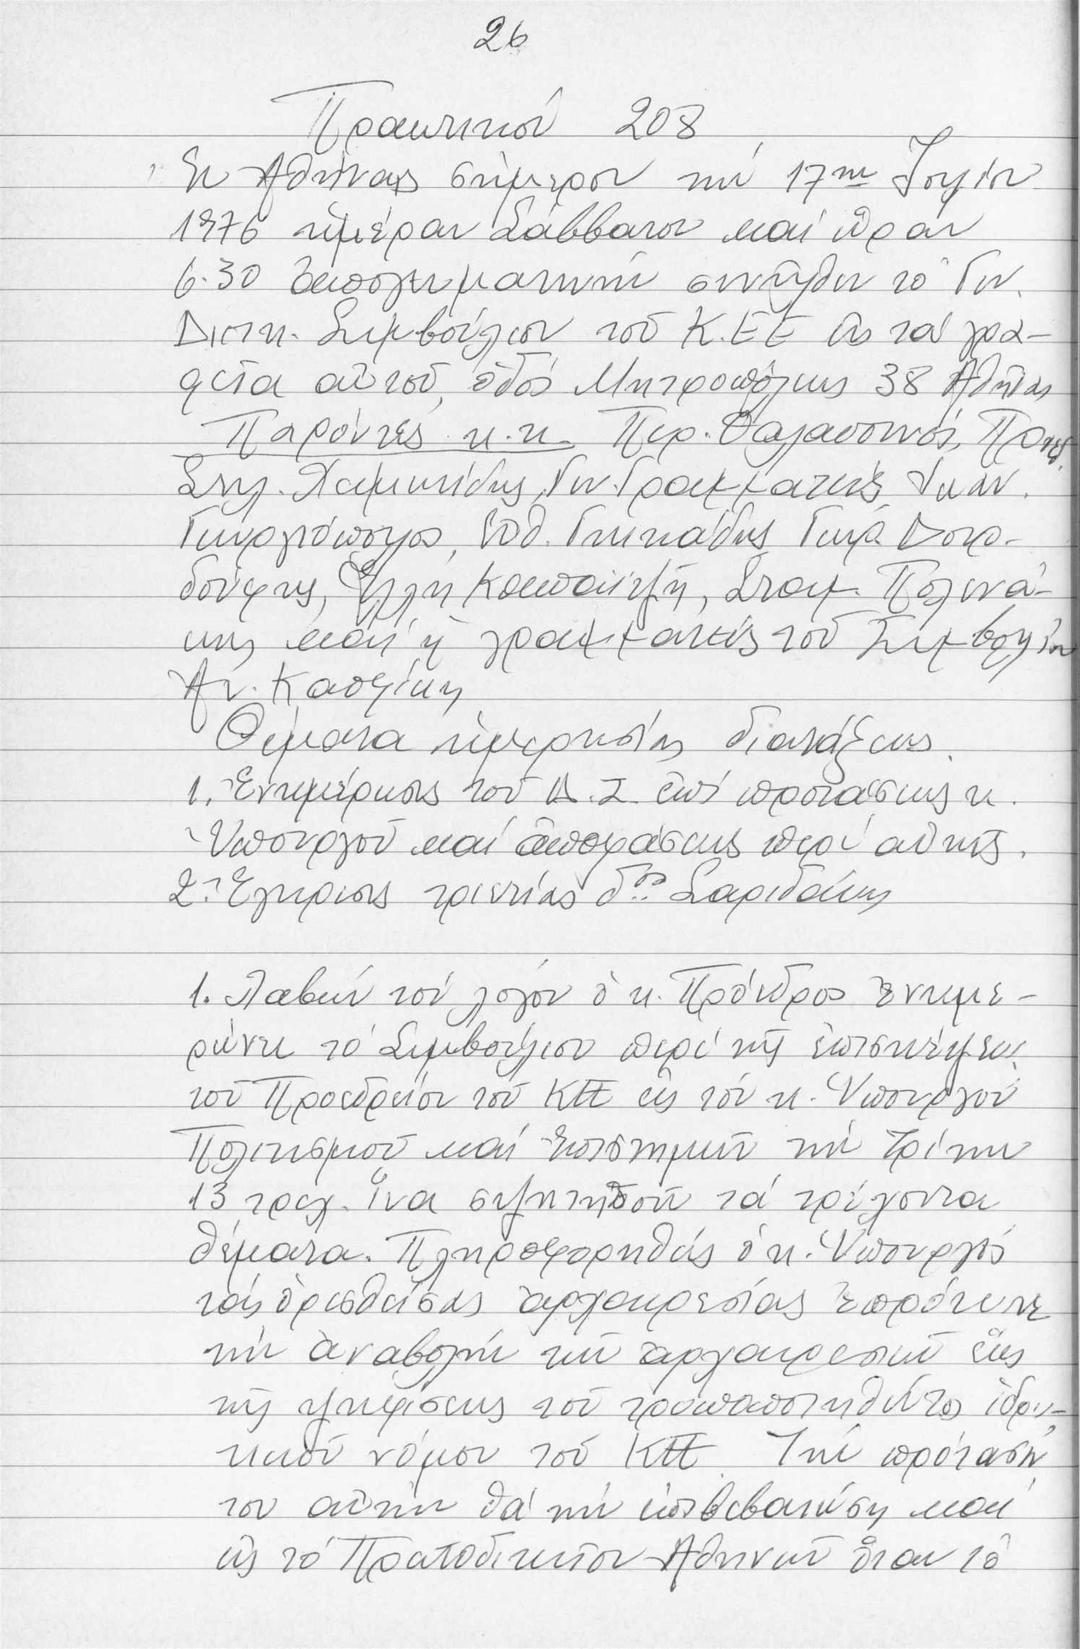 26
Πρακτικόν 208
Ἐν Ἀθήναις σήμερον τήν 17ην Ἰουλίου
1976 ἡμέραν Σάββατον καί ὥραν
6.30 ἀπογευματινήν συνῆλθεν τό Γεν.
Διοικ. Συμβούλιον τοῦ Κ.Ε.Ε εἰς τά γρα-
φεῖα αὐτοῦ, ὁδός Μητροπόλεως 38 Ἀθῆνας
Παρόντες κ.κ. Περ. Θαλασσινός, Προεδ.
Στυλ. Χαμκιίδης, Γεν. Γραμματεύς Ἰωάν.
Γεωργιόπουλος, Εὐθ. Γκικιάδης Γεώρ. Δουρ-
δούφης, Ἕλλη Καπαϊτζῆ, Σταμ. Πολενά-
κης καί ἡ γραμματεύς τοῦ Συμβουλίου
Αν. Καπρίκη
Θέματα ἡμερησίας διατάξεως.
1. Ἐνημέρωσις τοῦ Δ.Σ. ἐπί προτάσεως κ.
Ὑπουργοῦ καί ἀποφάσεως περί αὐτῆς.
2. Ἔγκρισις τριετίας δδος Σαριδάκη
1. Λαβών τόν λόγον ὁ κ. Πρόεδρος ἐνημε-
ρώνει τό Συμβούλιον περί τῆς ἐπισκέψεως
τοῦ Προεδρείου τοῦ ΚΕΕ εἰς τόν κ. Ὑπουργόν
Πολιτισμοῦ καί Ἐπιστημῶν τήν Τρίτην
13 τρεχ. ἵνα συζητηθοῦν τά τρέχοντα
θέματα. Πληροφορηθείς ὁ κ. Ὑπουργός
τάς ὁρισθείσας ἀρχαιρεσίας ἐπρότεινε
τήν ἀναβολήν τῶν ἀρχαιρεσιῶν ἕως
τῆς ψηφίσεως τοῦ τροποποιηθέντος ἱδρυ-
τικοῦ νόμου τοῦ ΚΕΕ. Τήν πρότασίν
του αὐτήν θά τήν ἐπιβεβαιώσῃ καί
εἰς τό Πρωτοδικεῖον Ἀθηνῶν ὅταν τό